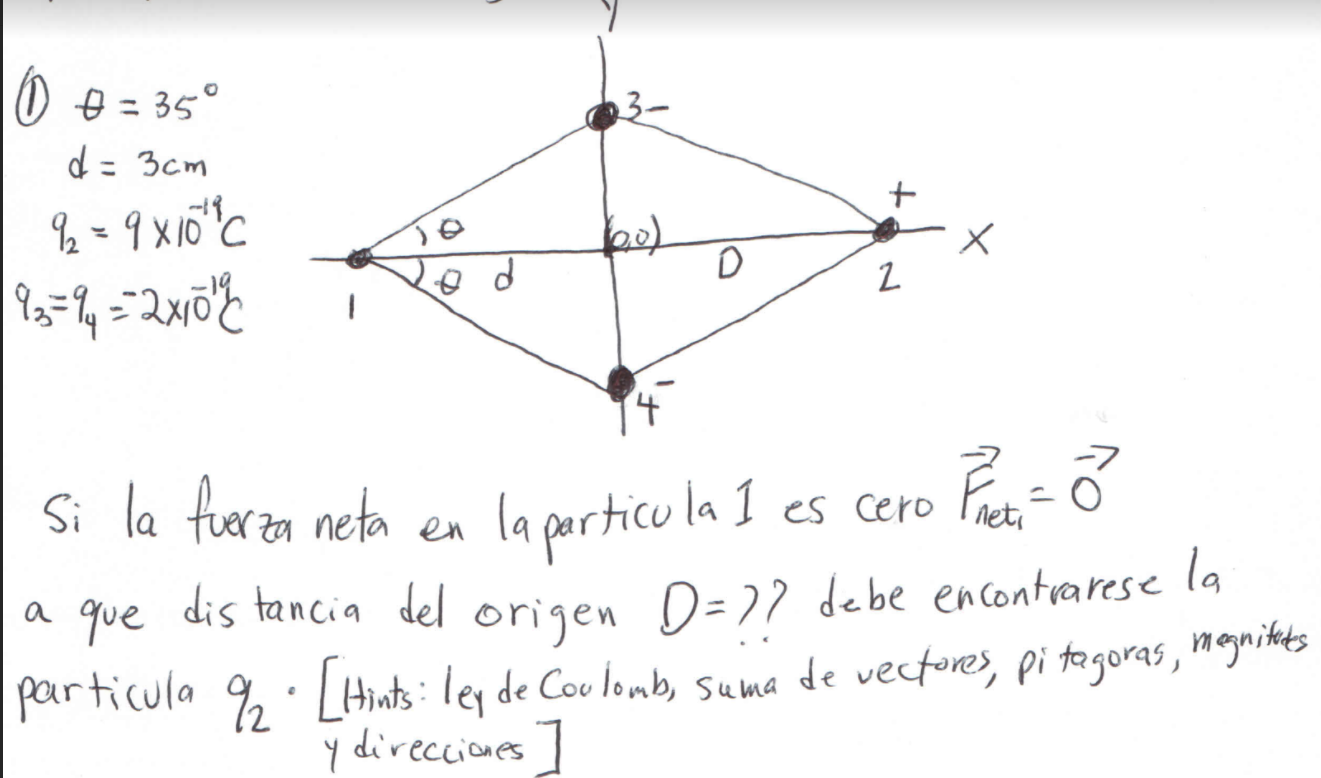 ① θ = 35°
d = 3cm
q₂ = 9 x 10⁻¹⁹ C
q₃ = q₄ = -2x10⁻¹⁹ C
3 -
+
θ
(0,0)
X
θ
d
D
1
2
4 -
Si la fuerza neta en la particula 1 es cero F⃗net₁ = 0⃗
a que distancia del origen D = ?? debe encontrarese la
particula q₂ . [Hints: ley de Coulomb, suma de vectores, pitagoras, magnitudes
y direcciones]